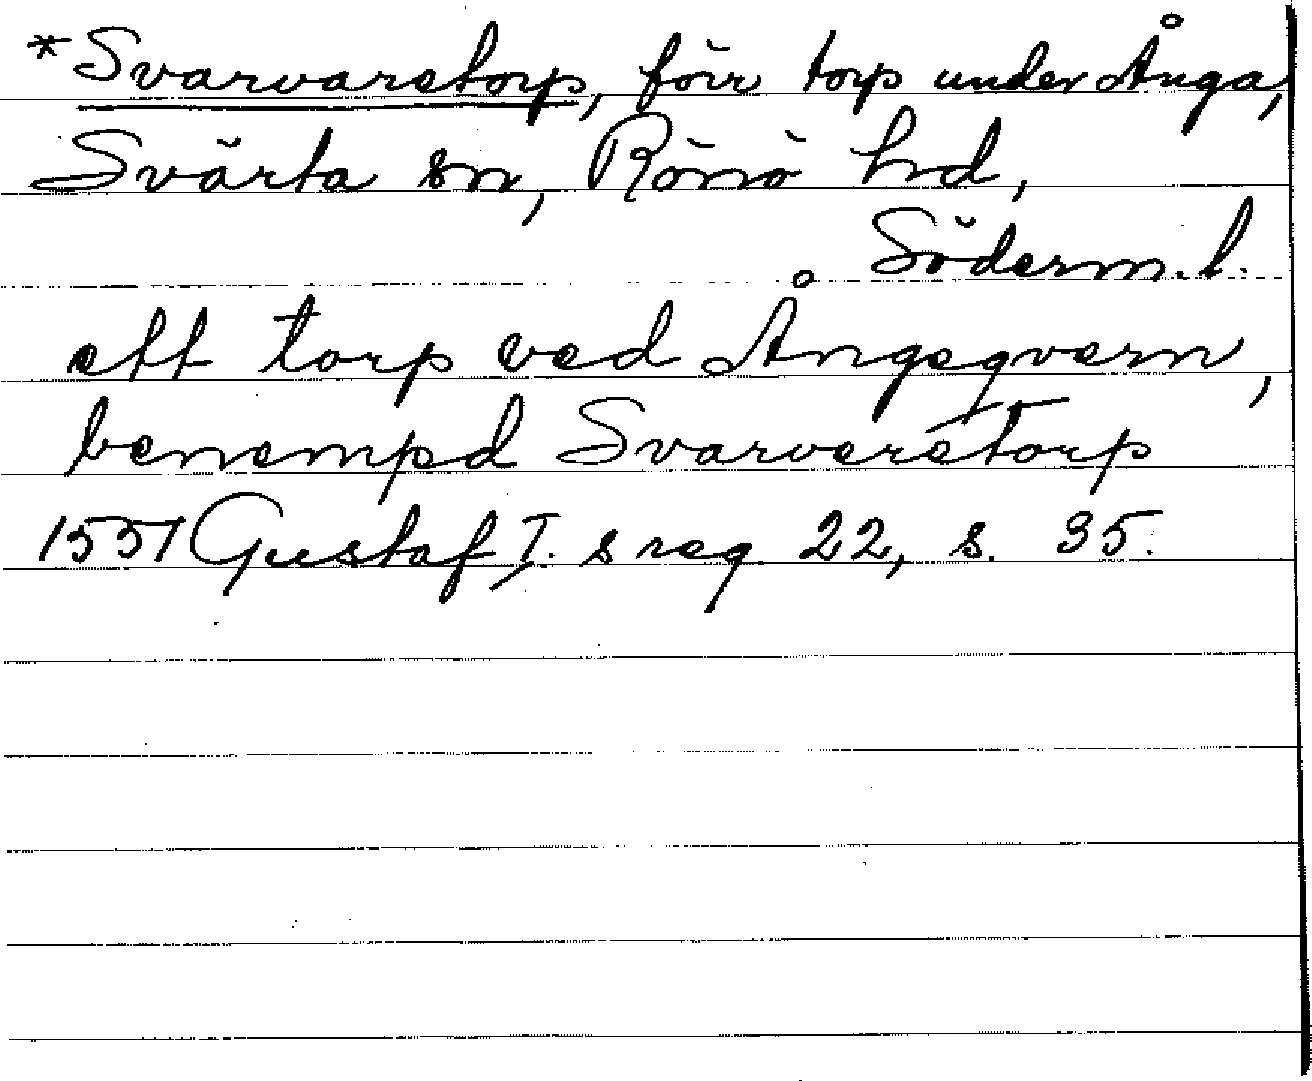 *Svarvaretorp, förr torp under Ånga,
Svärta sn, Rönö hd,
Söderm. l.
ett torp ved Ångeqvern,
benempd Svarveretorp
1551 Gustaf I. s reg 22, s. 35.